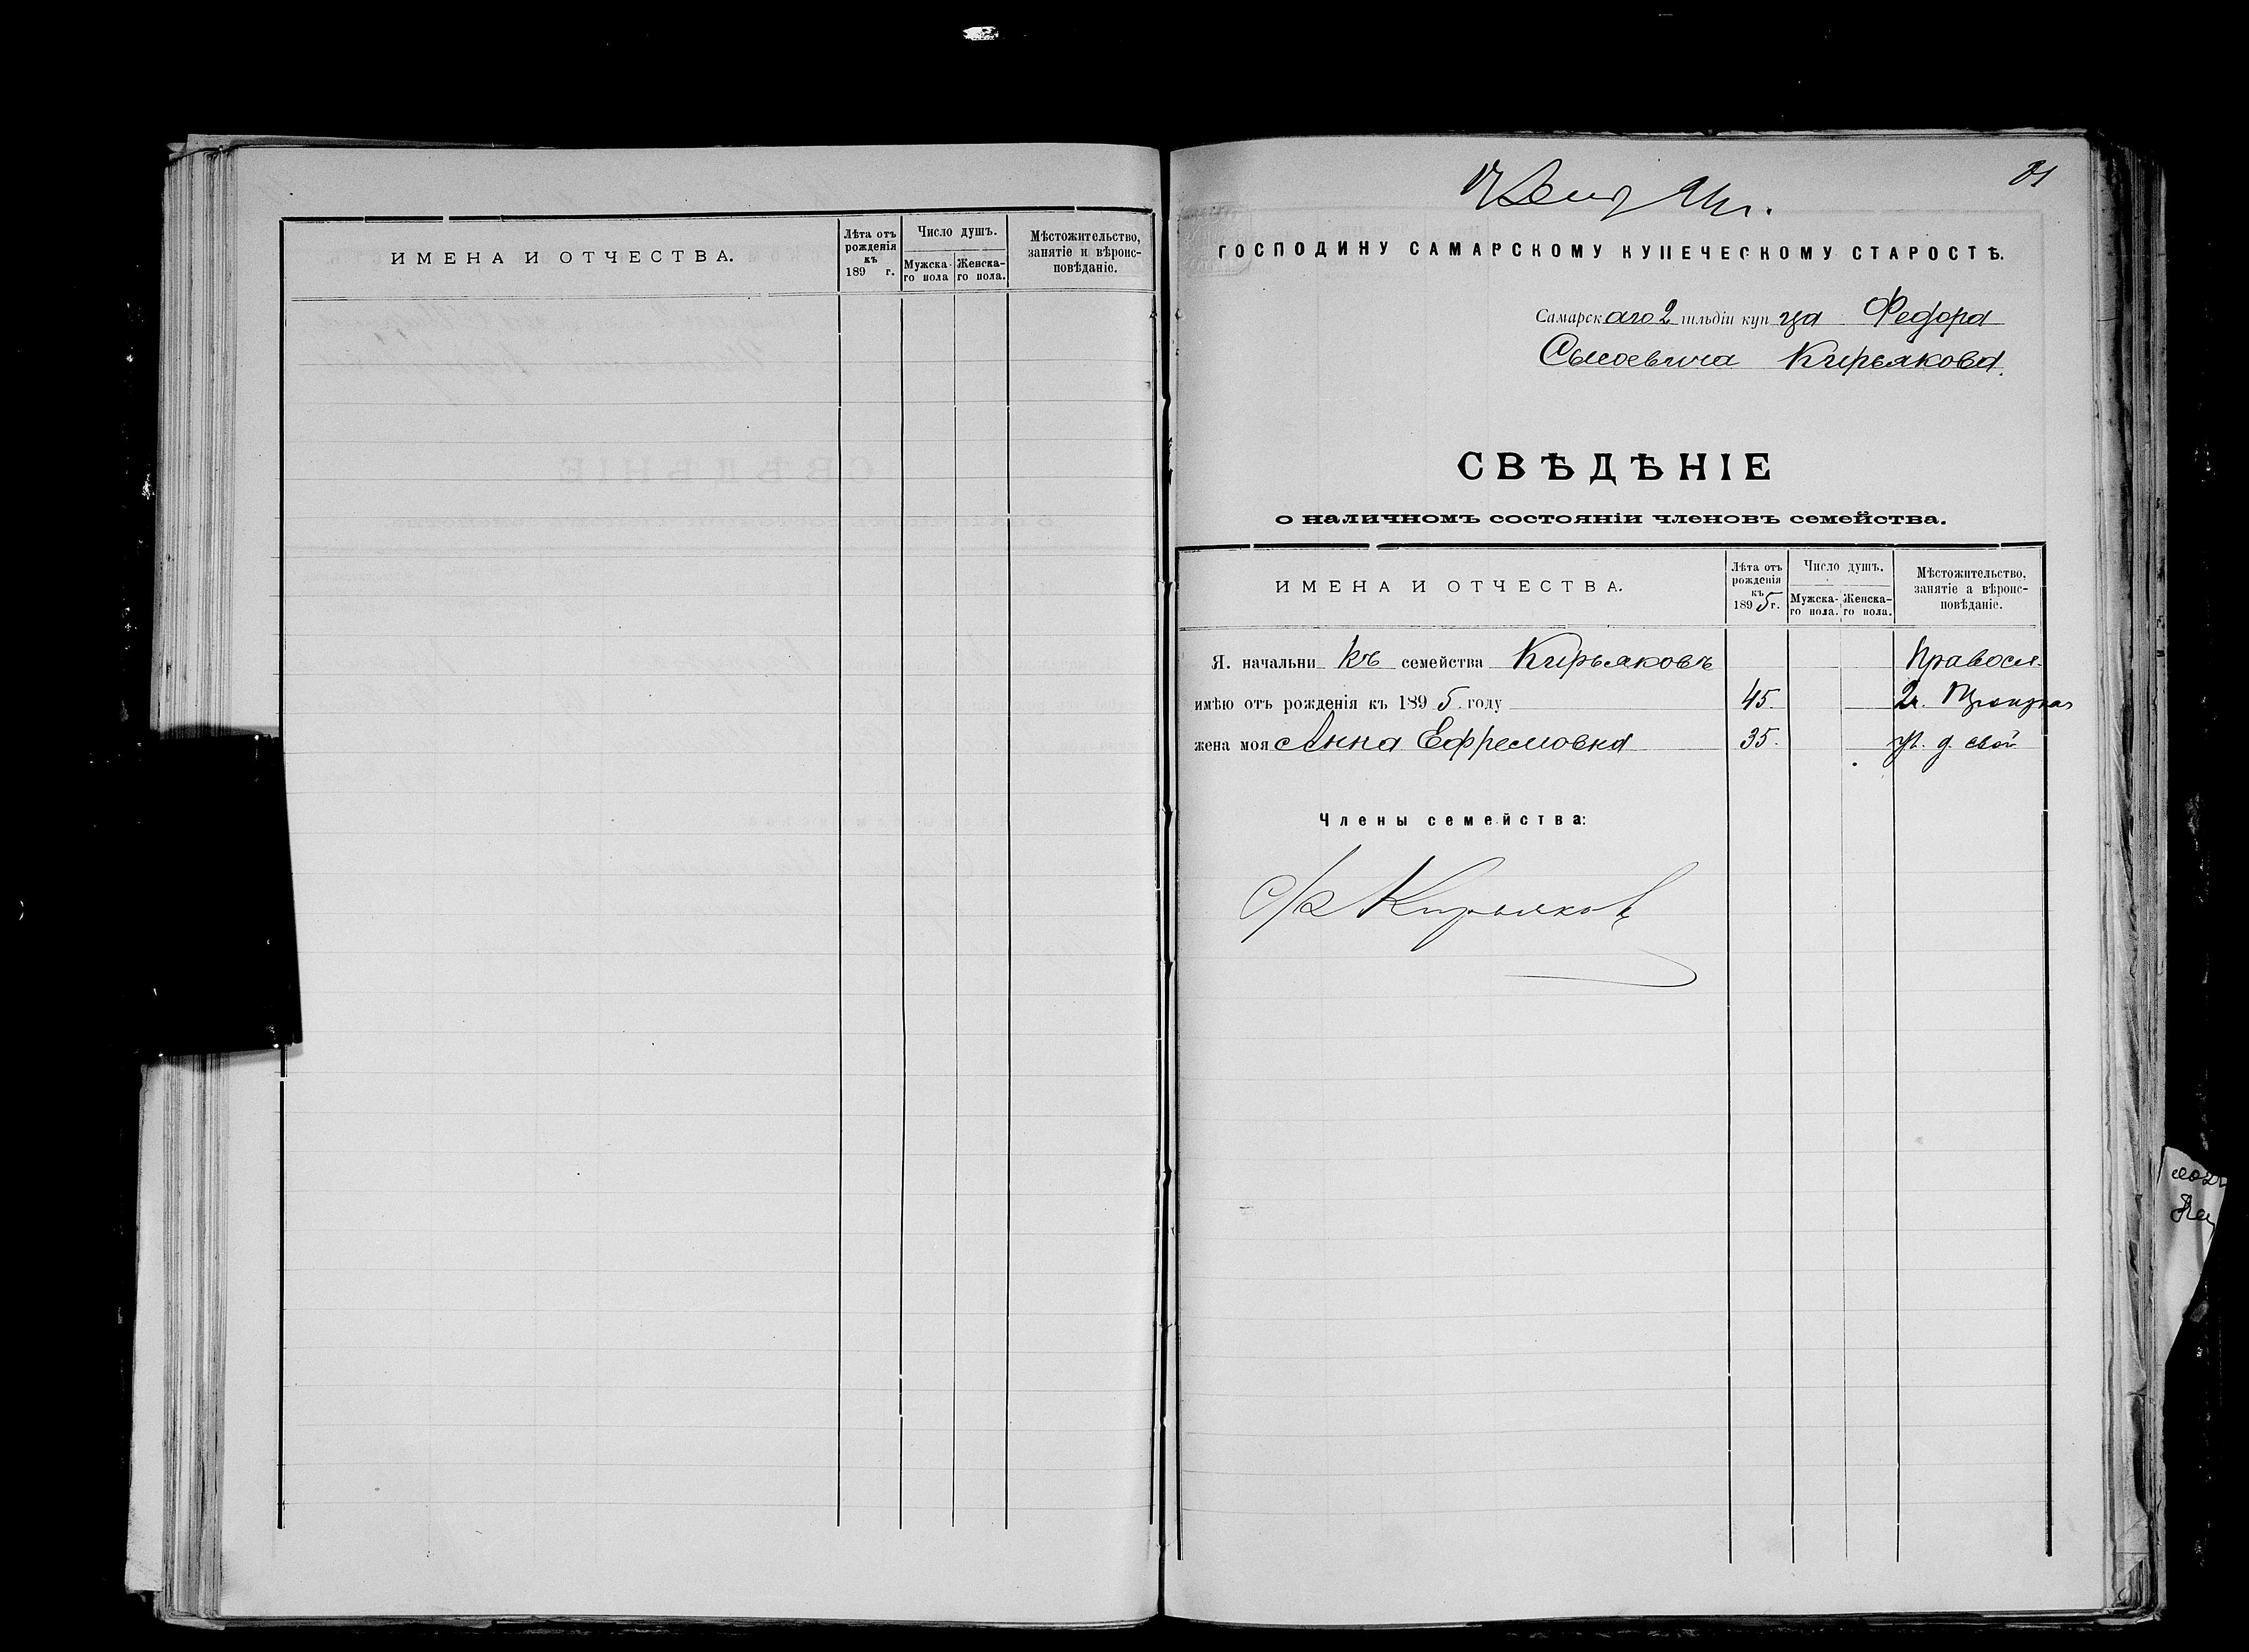 ИМЕНА И ОТЧЕСТВА.
Лѣта отъ рожденія къ 189 г.
Число душъ.
Мужска-го пола
Женска-го пола.
Мѣстожительство, занятіе и вѣроис-повѣданіе.
91 г.
ГОСПОДИНУ САМАРСКОМУ КУПЕЧЕСКОМУ СТАРОСТѢ.
Самарскаго 2 гильдіи купца Федора
Сысоевича Кирьякова.
СВѢДѢНІЕ
о наличномъ состояніи членовъ семейства.
ИМЕНА И ОТЧЕСТВА.
Лѣта отъ рожденія къ 1895 г.
Число душъ.
Мужска-го пола.
Женска-го пола.
Мѣстожительство, занятіе а вѣроис-повѣданіе.
Я. начальникъ семейства Кирьяковъ Правосл.
имѣю отъ рожденія къ 1895. году 45. 2 ч. Троицкая
жена моя Анна Ефремовна 35. ул. д. свой
Члены семейства:
Ф Кирьяковъ